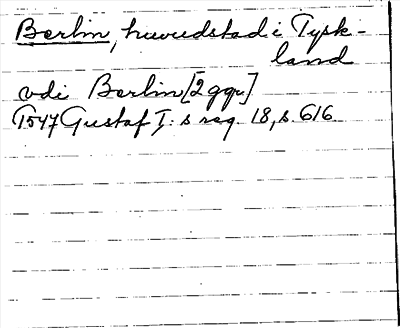 Berlin, huvudstad i Tysk-
land
vdi Berlin [2 ggr]
1547 Gustaf I:s reg. 18, s. 616